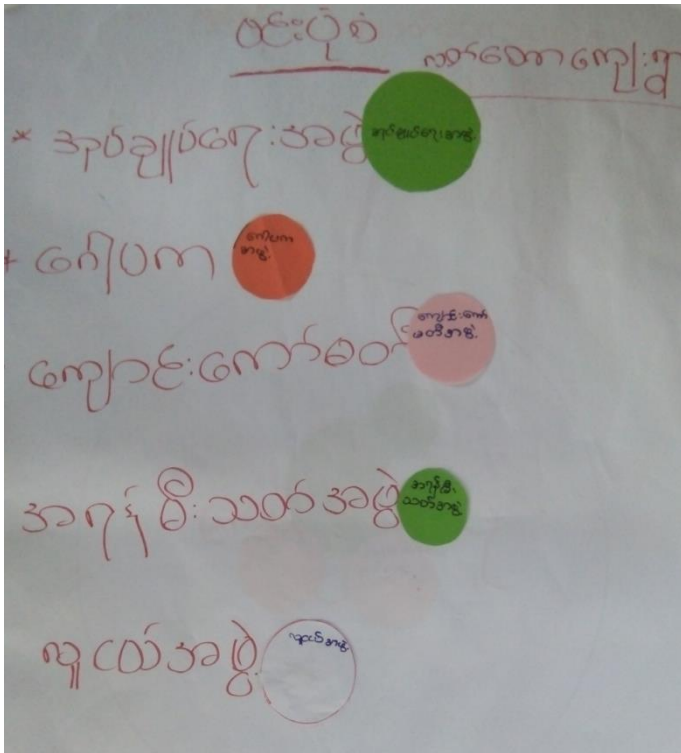 ဝင်းပုံစံ
လက်တောကျေးရွာ
* အုပ်ချုပ်ရေးအဖွဲ့
အုပ်ချုပ်ရေးအဖွဲ့
+ ဂေါပက
ဂေါပက
အဖွဲ့
ကျောင်းကော်မတီ
ကျောင်းကော်
မတီအဖွဲ့
အရန်မီးသတ်အဖွဲ့
အရန်မီး
သတ်အဖွဲ့
လူငယ်အဖွဲ့
လူငယ်အဖွဲ့